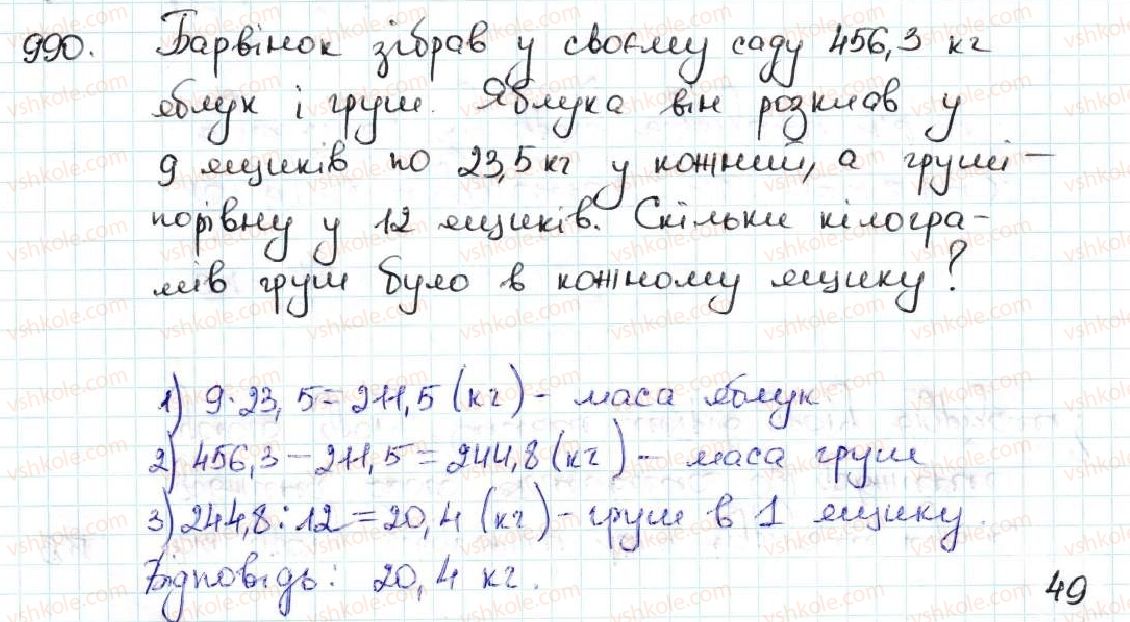 990. Барвінок зібрав у своєму саду 456,3 кг
яблук і груш. Яблука він розклав у
9 ящиків по 23,5 кг у кожний, а груші –
порівну у 12 ящиків. Скільки кілогра-
мів груш було в кожному ящику?
1) 9·23,5=211,5 (кг) - маса яблук
2) 456,3-211,5=244,8 (кг) - маса груш
3) 244,8:12=20,4 (кг) - груш в 1 ящику
Відповідь: 20,4 кг.
49
vshkole.com